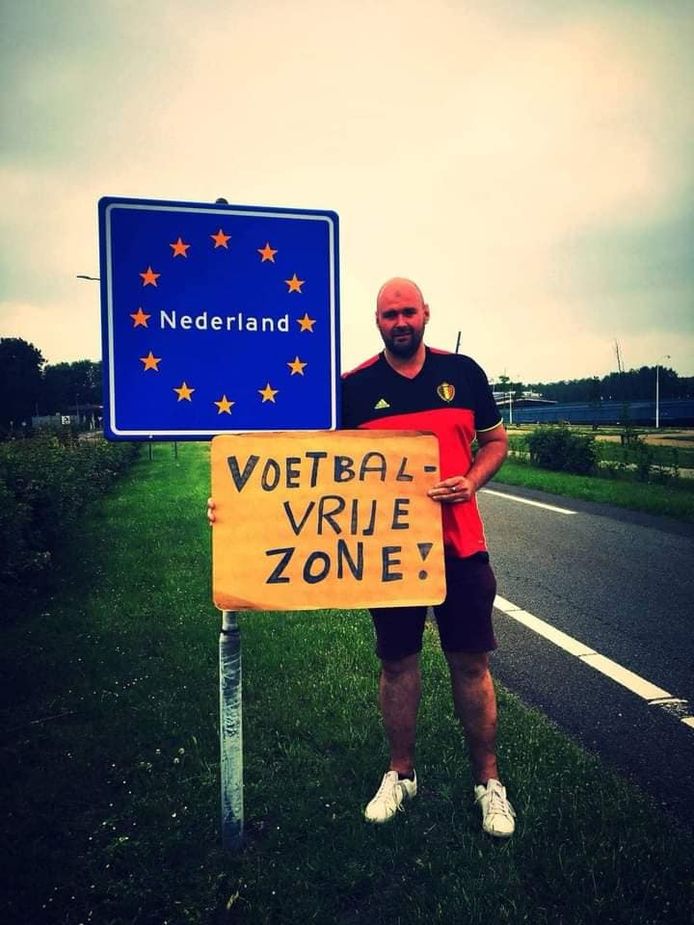 Nederland
VOETBAL-
VRIJE
ZONE!